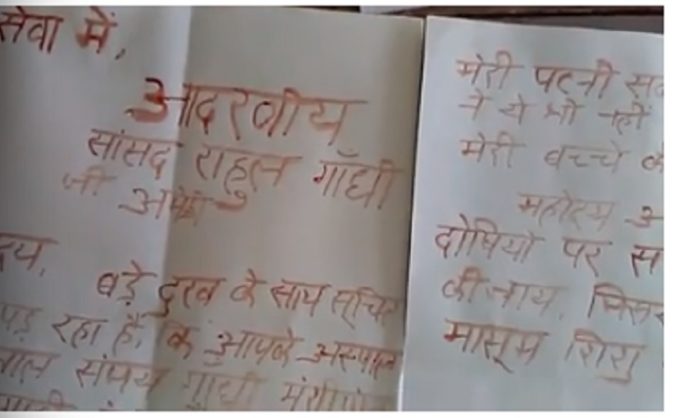 सेवा में,
आदरणीय
सांसद राहुल गाँधी
जी अमेठी
बड़े दुख के साथ सूचित
पड़ रहा है, कि आपके अस्पताल
संजय गाधी
मेरी पत्नी
ने ये भी नहीं
मेरी बच्चे
महोदय
दोषियो पर स
की जाय, जिस
मासूम शिशु